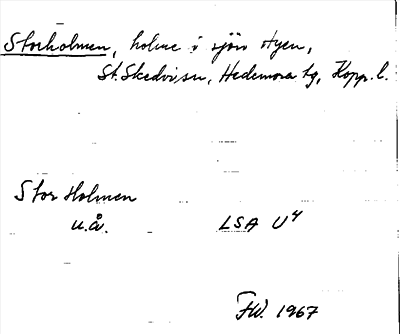 Storholmen, holme i sjön Hyen,
St. Skedvi sn, Hedemora tg, Kopp. l.
Stor Holmen
u.å. LSA U4
FW. 1967